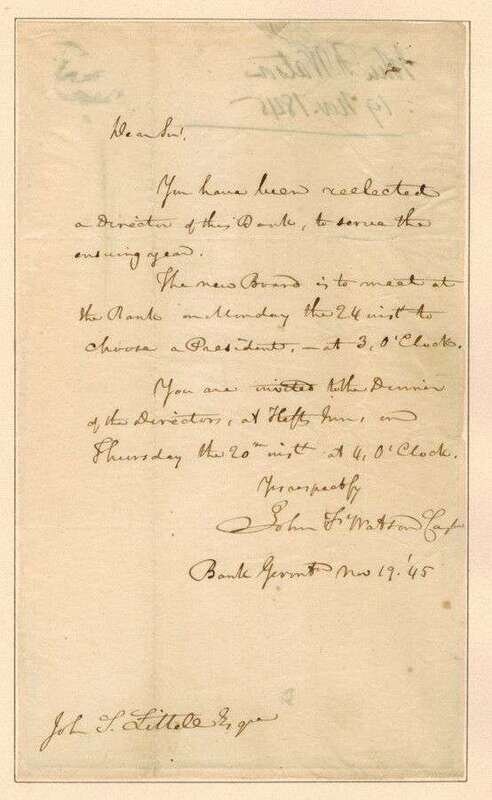 Dear Sir,
You have been reelected
a Director of this Bank, to serve the
ensuing year.
The new Board is to meet at
the Bank on Monday the 24 inst to
choose a President, – at 3, O'Clock.
You are invited to the Dinner
of the Directors, at Hefts Inn, on
Thursday the 20th inst at 4, O'Clock.
Yrs respectfy
John F Watson Cash
Bank Germt Nov 19. '45
John S. Littell Esqre